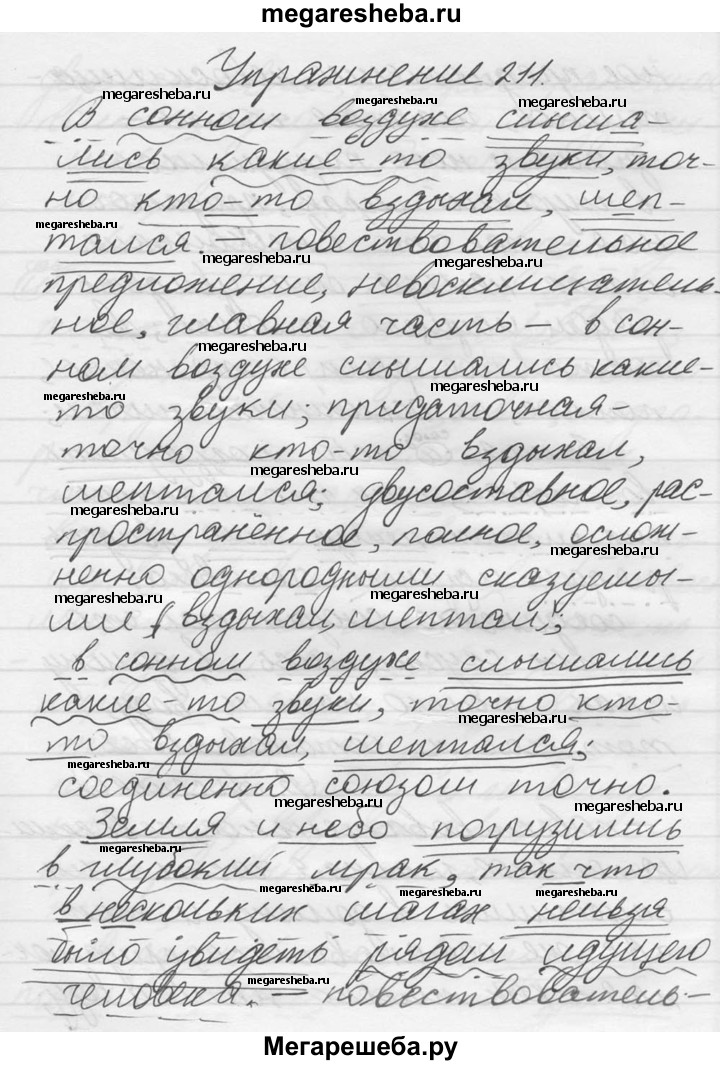 megaresheba.ru
Упражнение 211.
В сонном воздухе слыша-
лись какие-то звуки, точ-
но кто-то вздыхал, шеп-
тался. — повествовательное
предложение, невосклицатель-
ное, главная часть – в сон-
ном воздухе слышались какие-
то звуки; придаточная-
точно кто-то вздыхал,
шептался; двусоставное, рас-
пространённое, полное, ослож-
ненно однородными сказуемы-
ми вздыхал, шептал;
в сонном воздухе слышались
какие-то звуки, точно кто-
то вздыхал, шептался;
соединенно союзом точно.
Земля и небо погрузились
в глубокий мрак, так что
в нескольких шагах нельзя
было увидеть рядом идущего
человека. — повествователь-
Мегарешеба.ру